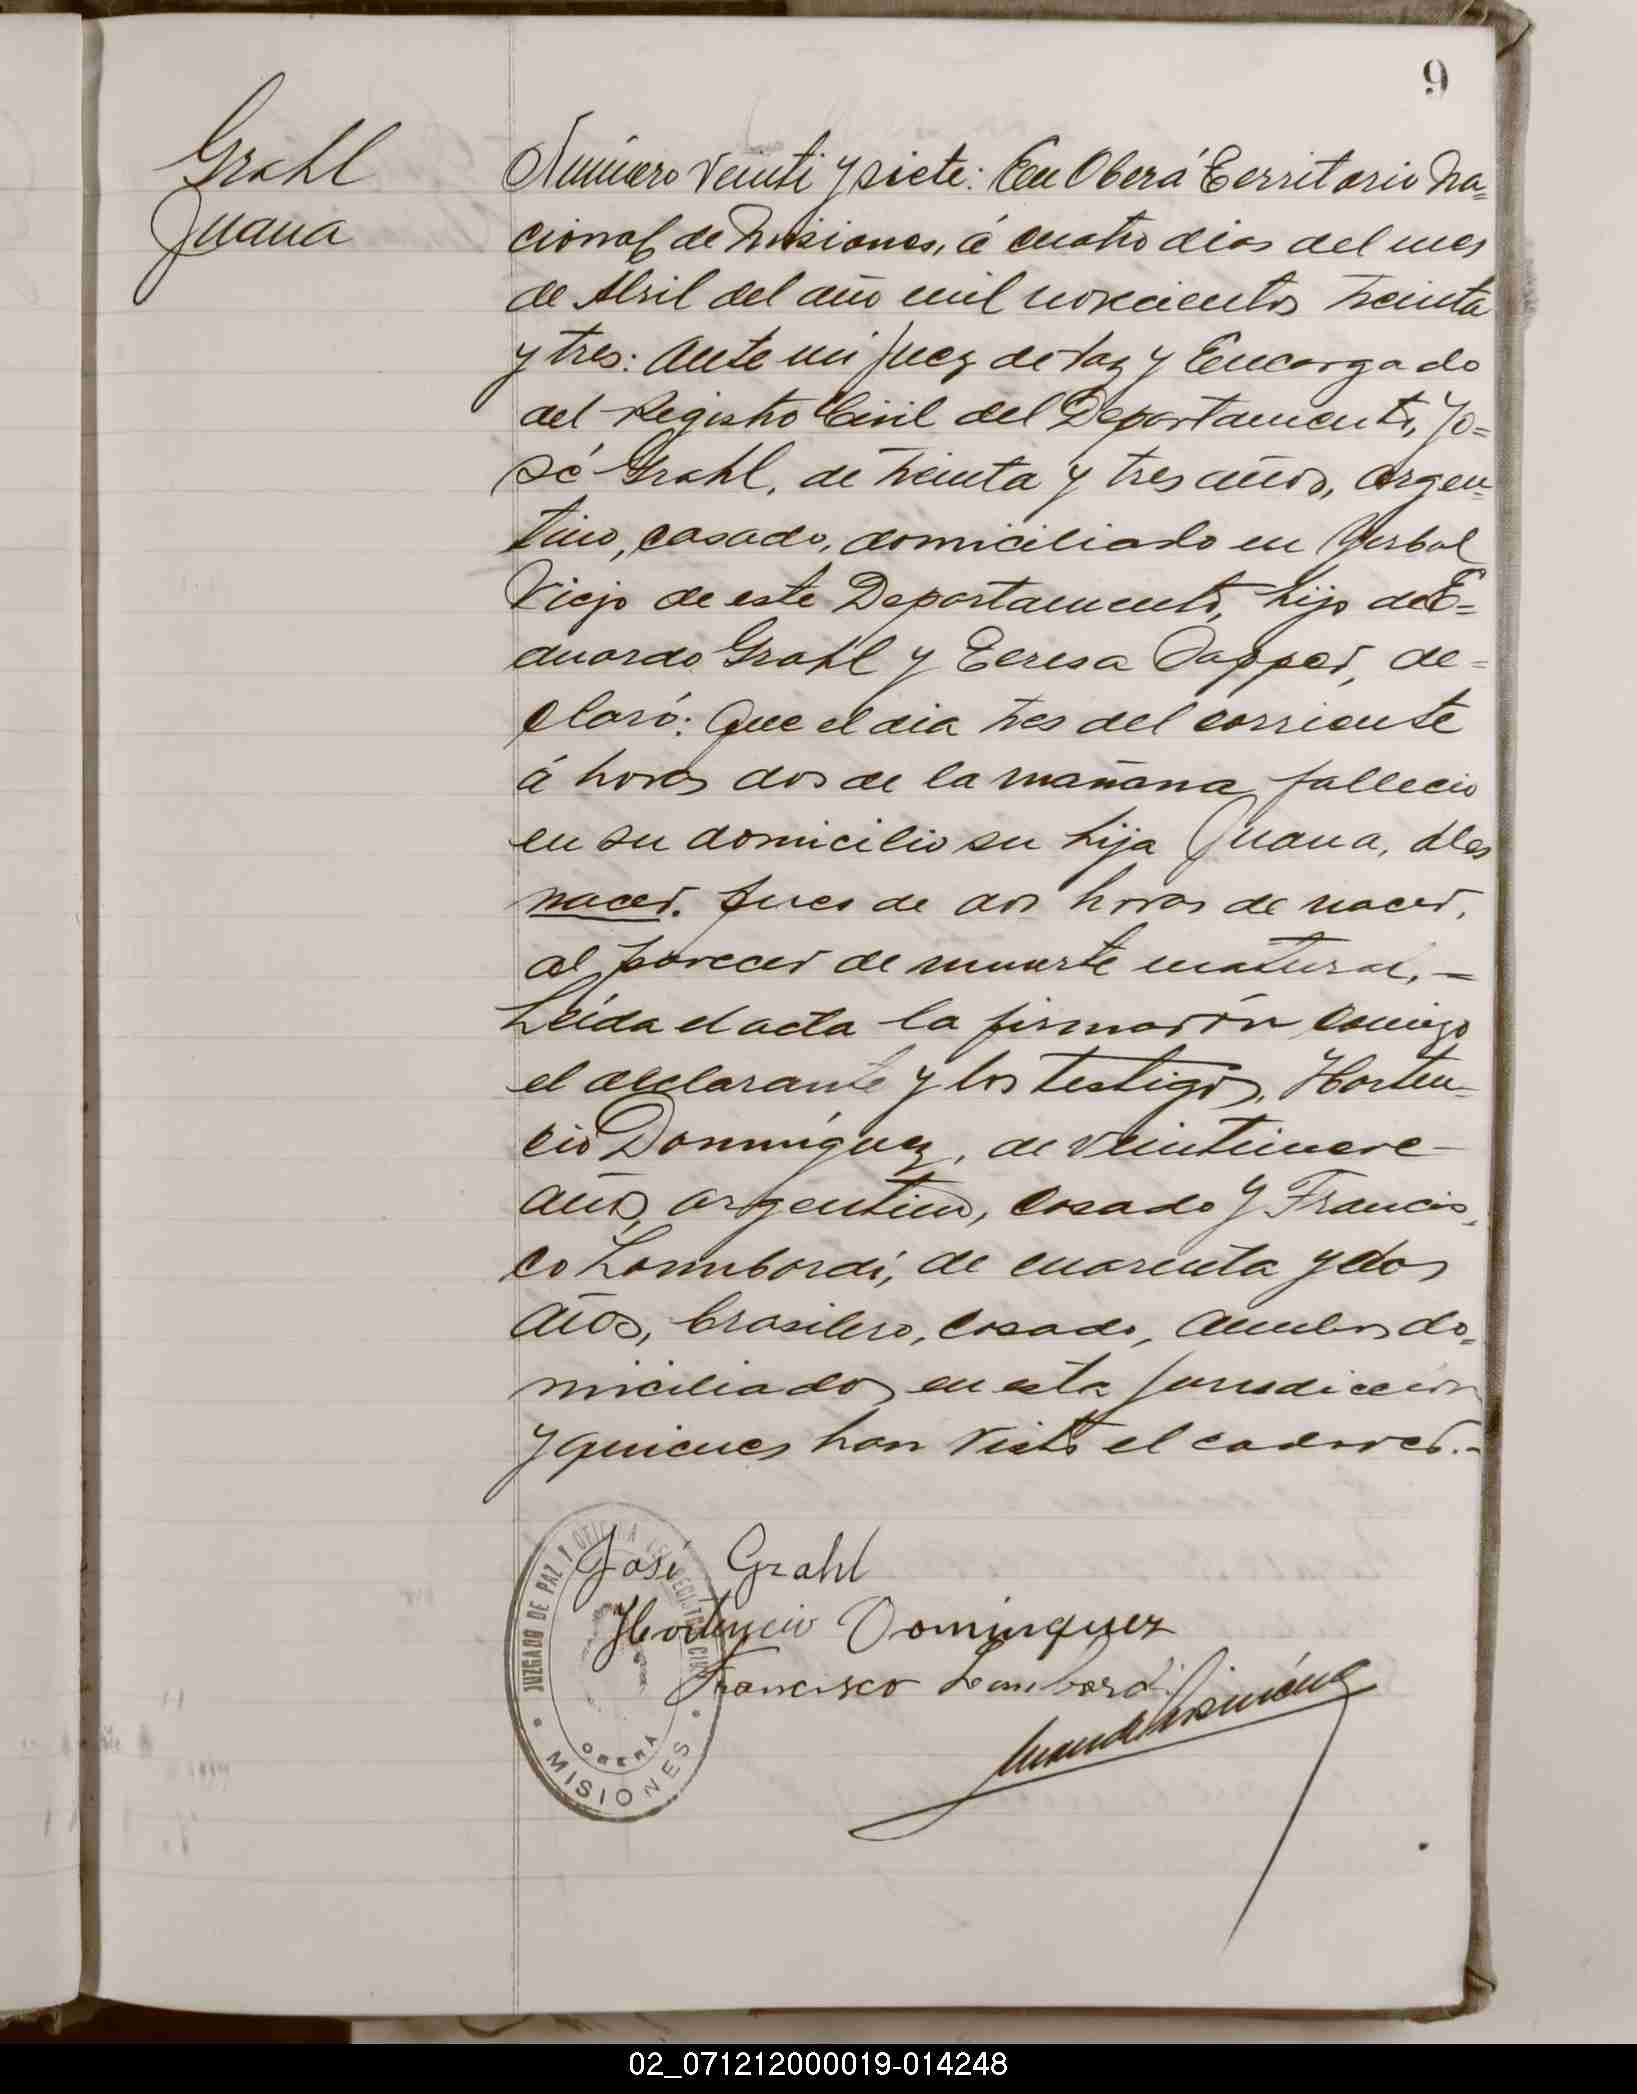 9
Grahl
Juana
Número veinti y siete: En Oberá Territorio Na=
cional de Misiones, á cuatro dias del mes
de Abril del año mil novecientos treinta
y tres: Ante mi Juez de Paz y Encargado
del Registro Civil del Departamento, Jo=
sé Grahl, de treinta y tres años, argen=
tino, casado, domiciliado en Yerbal
Viejo de este Departamento, hijo de E=
duardo Grahl y Teresa Dapper, de=
claró: Que el dia tres del corriente
á horas dos de la mañana fallecio
en su domicilio su hija Juana, des
nacer. pues de dos horas de nacer,
al parecer de muerte natural.-
Leída el acta la firmarón comigo
el declarante y los testigos, Horten=
cio Domínguez, de veintinueve
años, argentino, casado y Francis=
co Lombardi, de cuarenta y dos
años, brasilero, casado, ambos do=
miciliados en esta jurisdicción
y quienes han visto el cadaver.-
José Grahl
Hortencio Dominguez
Francisco Lombardi
JUZGADO DE PAZ Y OFICINA DEL REGISTRO CIVIL
OBERÁ
MISIONES
02_071212000019-014248